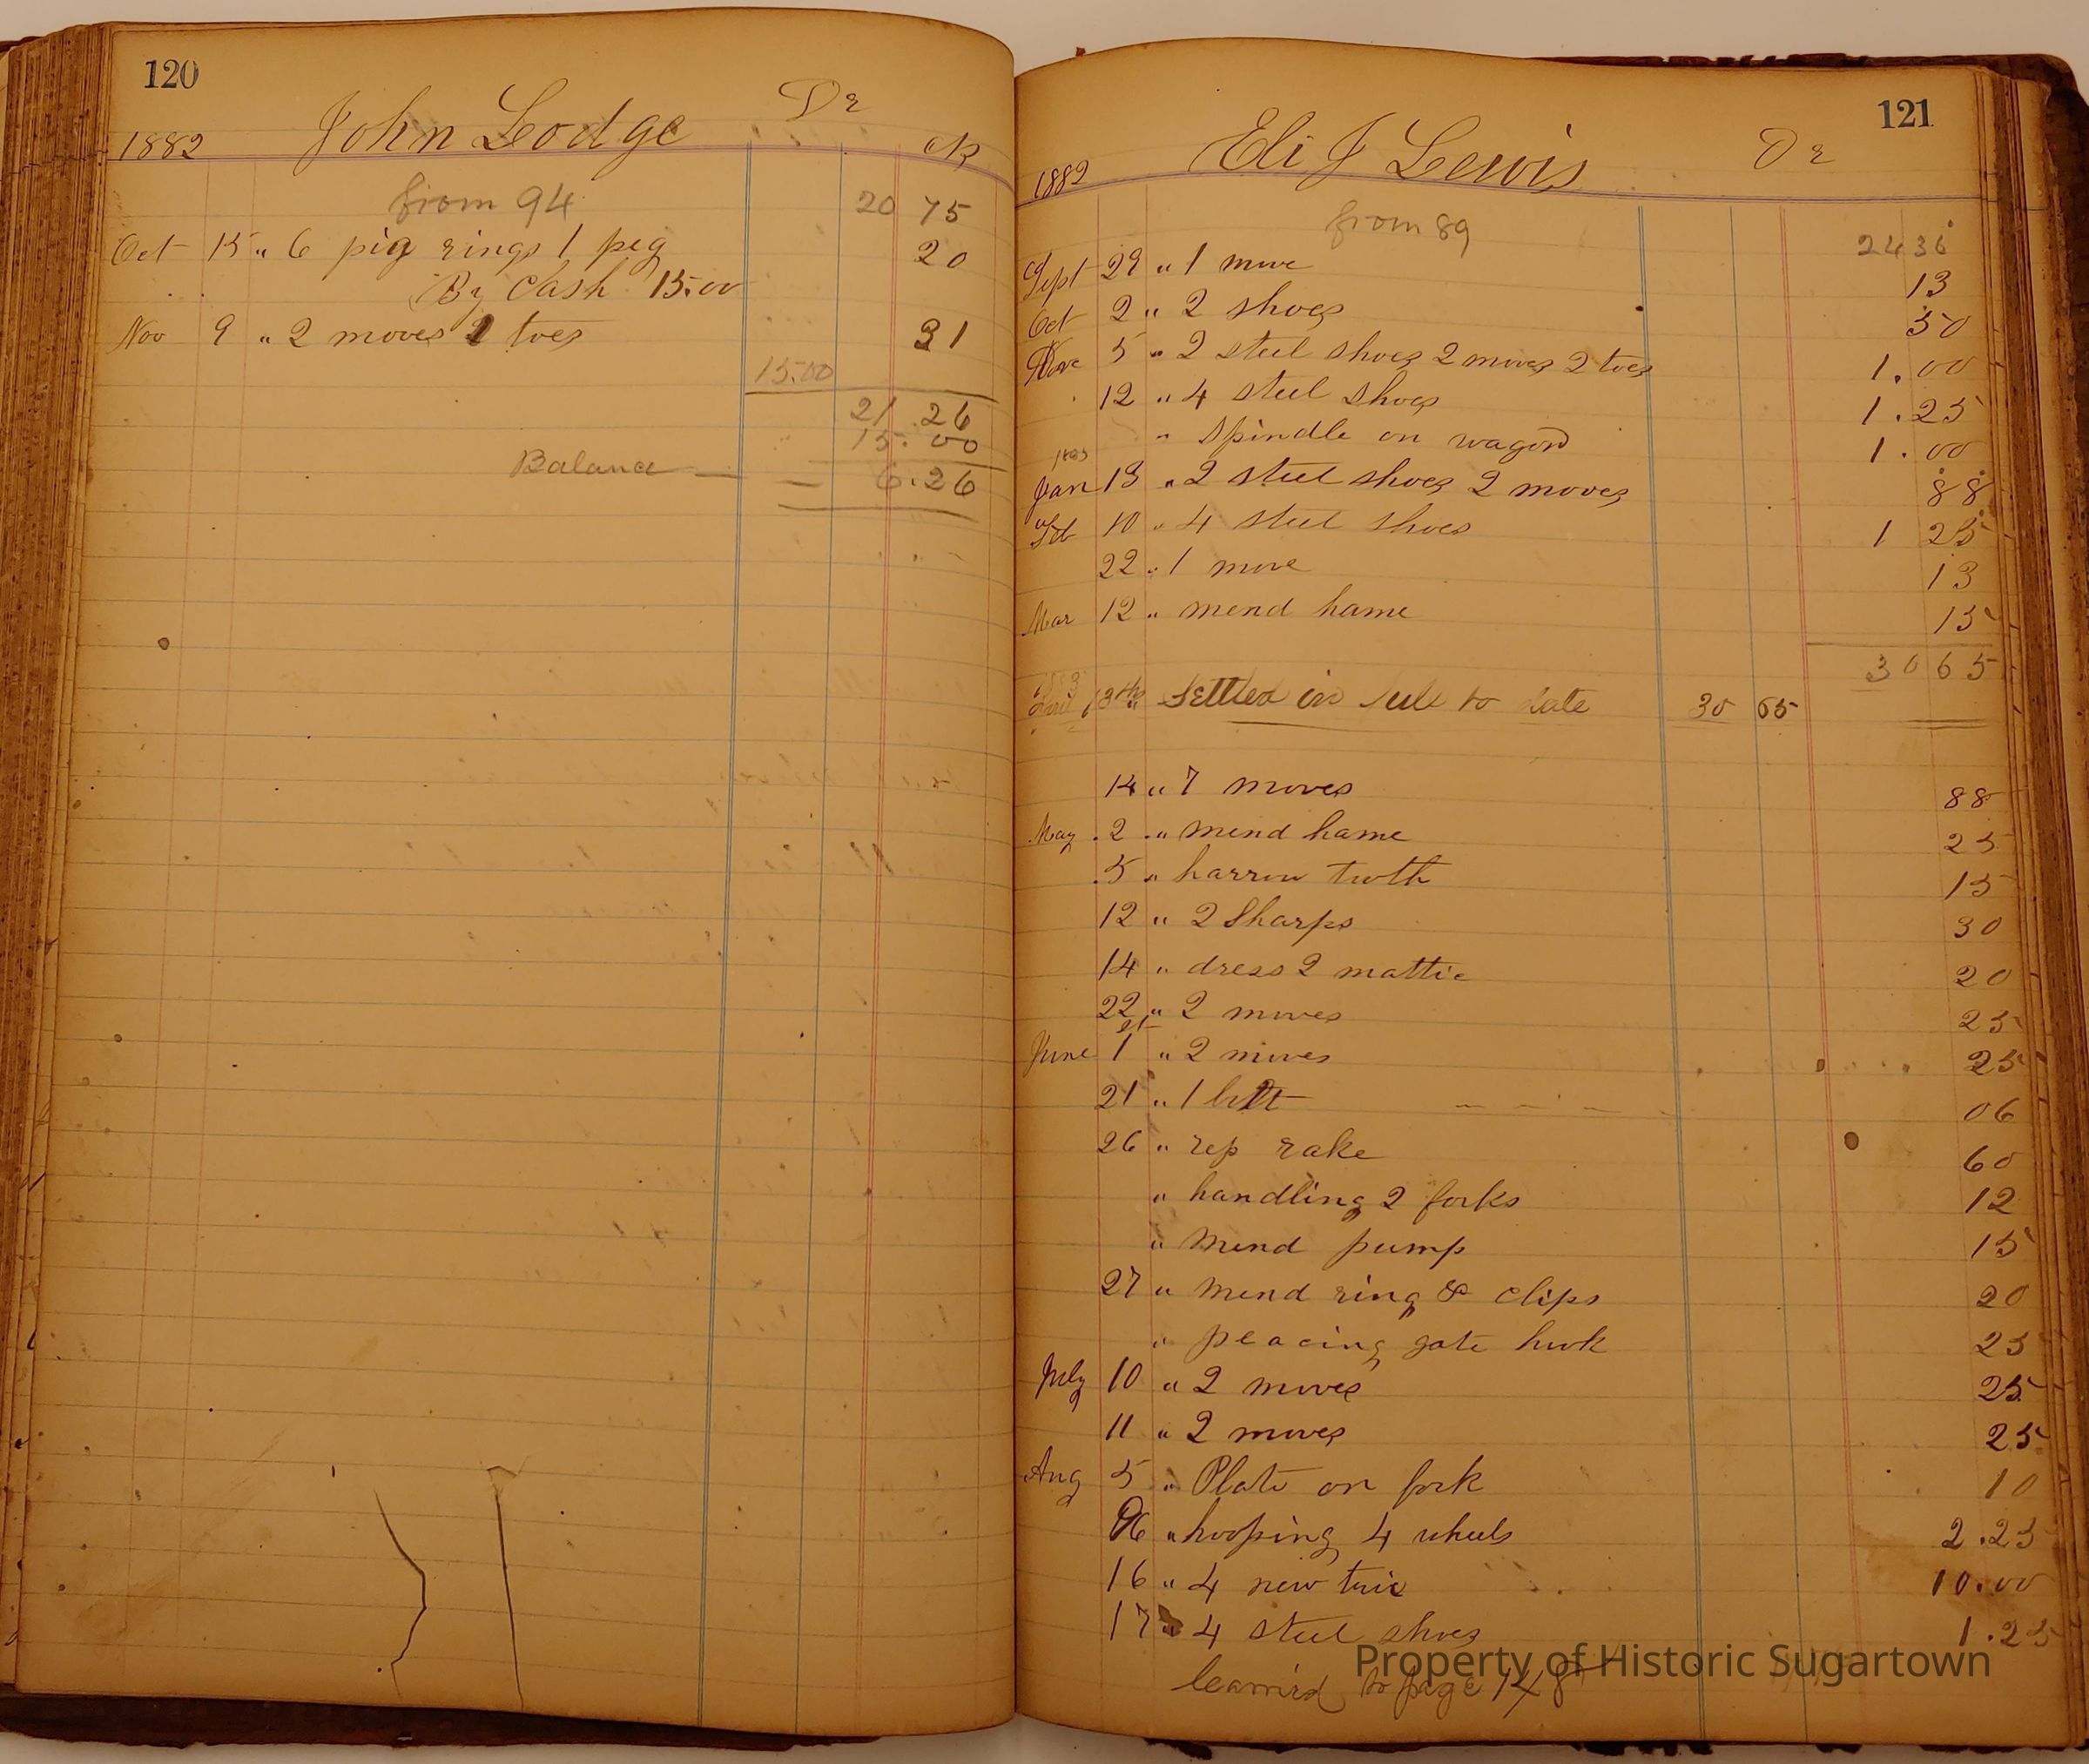 120
John Lodge Dr
1882 CR
from 94 20 75
Oct 15 " 6 pig rings 1 peg 20
By Cash 15.00
Nov 9 " 2 moves 2 toes 31
15.00
21.26
15.00
Balance 6.26
121
Eli J Lewis Dr
1882
from 89 24 36
Sept 29 " 1 move 13
Oct 2 " 2 shoes 50
Nove 5 " 2 steel shoes 2 moves 2 toes 1.00
12 " 4 steel shoes 1.25
" Spindle on wagon 1.00
1883
Jan 13 " 2 steel shoes 2 moves 88
Feb 10 " 4 steel shoes 1 25
22 " 1 move 13
Mar 12 " mend hame 15
30 65
1883
April 13th " Settled in full to date 30 65
14 " 7 moves 88
May 2 " mend hame 25
5 " harrow tooth 15
12 " 2 Sharps 30
14 " dress 2 mattic 20
22 " 2 moves 25
June 1st " 2 moves 25
21 " 1 bolt 06
26 " rep rake 60
" handling 2 forks 12
" mend pump 15
27 " mend ring & clips 20
" peacing gate hook 25
July 10 " 2 moves 25
11 " 2 moves 25
Aug 5 " Plate on fork 10
06 " hooping 4 wheels 2.25
16 " 4 new tire 10.00
17 " 4 steel shoes 1.25
to page 148
Property of Historic Sugartown